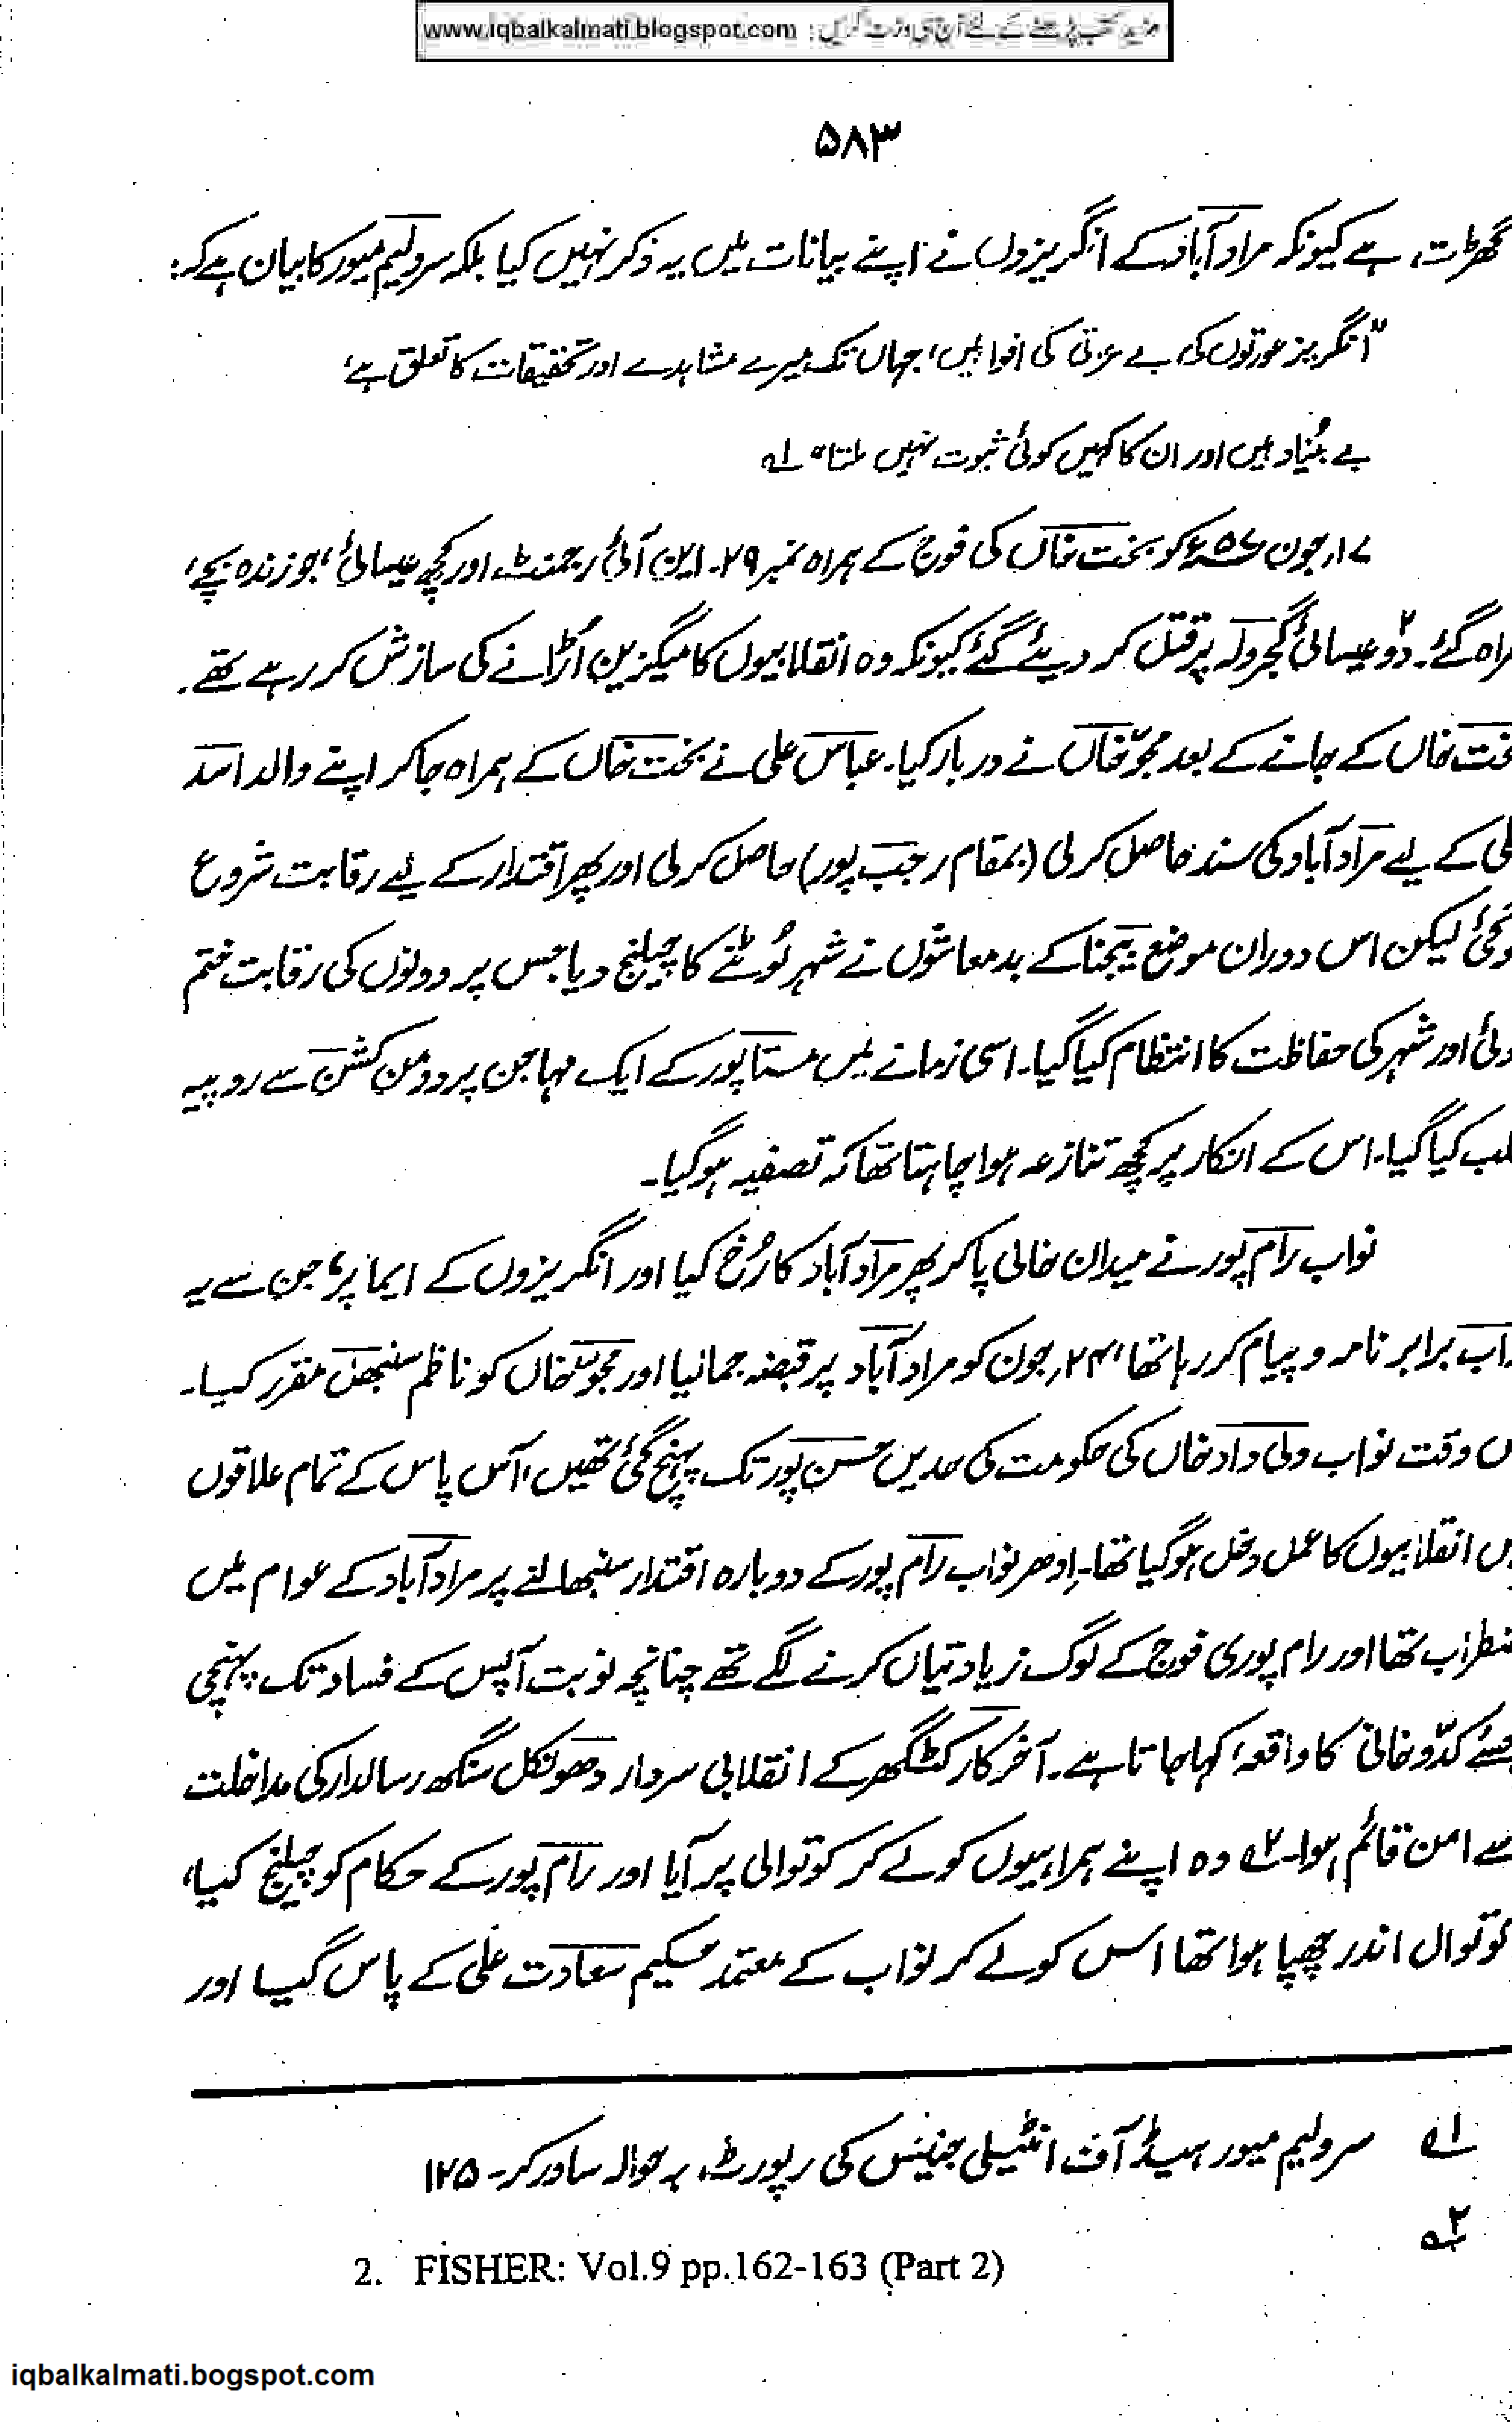 www.iqbalkalmati.blogspot.com : مزید کتب پڑھنے کے لئے آج ہی وزٹ کریں
۵۸۳
گھڑت ہے کیونکہ مرادآباد کے انگریزوں نے اپنے بیانات میں یہ ذکر نہیں کیا بلکہ سر ولیم میور کا بیان ہے کہ:
"انگریز عورتوں کی بے عزتی کی افواہیں، جہاں تک میرے مشاہدے اور تحقیقات کا تعلق ہے،
بے بُنیاد ہیں اور ان کا کہیں کوئی ثبوت نہیں ملتا" ۱ے
۱۷ر جون ۵۷ء کو بخت خاں کی فوج کے ہمراہ نمبر ۲۹۔ این آئی رجمنٹ اور کچھ عیسائی، جو زندہ بچے،
راہ گئے۔ دو۲ عیسائی گجرولہ پر قتل کر دیئے گئے کیونکہ وہ انقلابیوں کا میگزین اُڑانے کی سازش کر رہے تھے۔
خت خاں کے جانے کے بعد مجوّ خاں نے دربار کیا۔ عباس علی نے بخت خاں کے ہمراہ جا کر اپنے والد اسد
لی کے لیے مرادآباد کی سند حاصل کر لی (بمقام رجب پور) حاصل کر لی اور پھر اقتدار کے لیے رقابت شروع
وگئی لیکن اس دوران موضع بیجنا کے بدمعاشوں نے شہر لُوٹنے کا چیلنج دیا جس پر دونوں کی رقابت ختم
وئی اور شہر کی حفاظت کا انتظام کیا گیا۔ اسی زمانے میں مستاپور کے ایک مہاجن پردومن کشن سے روپیہ
لب کیا گیا۔ اس کے انکار پر کچھ تنازعہ ہوا چاہتا تھا کہ تصفیہ ہو گیا۔
نواب رام پور نے میدان خالی پا کر پھر مرادآباد کا رُخ کیا اور انگریزوں کے ایما پر، جن سے یہ
اب برابر نامہ و پیام کر رہا تھا، ۲۴ر جون کو مرادآباد پر قبضہ جمالیا اور مجوّ خاں کو ناظم سنبھل مقرر کیا۔
س وقت نواب ولی داد خاں کی حکومت کی حدیں حسن پور تک پہنچ گئی تھیں، آس پاس کے تمام علاقوں
ں انقلابیوں کا عمل دخل ہو گیا تھا۔ اِدھر نواب رام پور کے دوبارہ اقتدار سنبھالنے پر مرادآباد کے عوام میں
ضطراب تھا اور رام پوری فوج کے لوگ زیادتیاں کرنے لگے تھے چنانچہ نوبت آپس کے فساد تک پہنچی
جسے کدّو خانی کا واقعہ، کہا جاتا ہے۔ آخر کار کٹگھر کے انقلابی سردار دھونکل سنگھ رسالدار کی مداخلت
سے امن قائم ہوا۔ ۲ے وہ اپنے ہمراہیوں کو لے کر کوتوالی پر آیا اور رام پور کے حکام کو چیلنج کیا،
کوتوال اندر چھپا ہوا تھا اس کو لے کر نواب کے معتمد حکیم سعادت علی کے پاس گیا اور
۱ے سر ولیم میور ہیڈ آف انٹیلی جینس کی رپورٹ، بہ حوالہ ساورکر۔ ۱۲۵
۲ے
2. FISHER: Vol.9 pp.162-163 (Part 2)
iqbalkalmati.bogspot.com